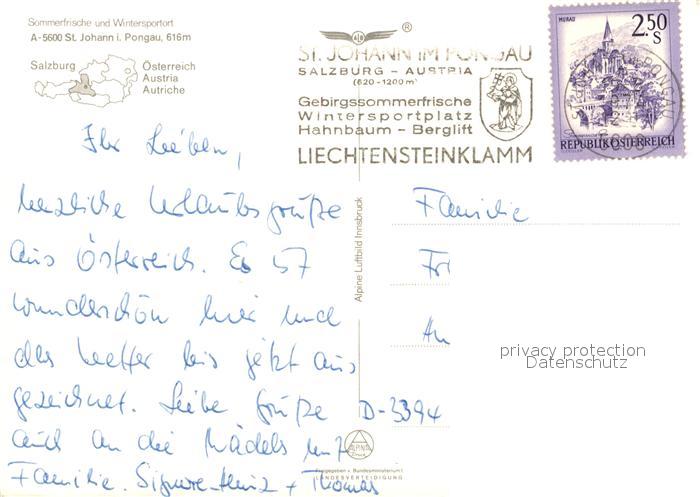 Sommerfrische und Wintersportort
A-5600 St. Johann i. Pongau, 616m
Salzburg
Österreich
Austria
Autriche
®
ST. JOHANN IM PONGAU
SALZBURG - AUSTRIA
(620-1200m)
Gebirgssommerfrische
Wintersportplatz
Hahnbaum - Berglift
LIECHTENSTEINKLAMM
MURAU
2.50
S
REPUBLIK ÖSTERREICH
Ihr Lieben,
herzliche Urlaubsgrüße
aus Österreich. Es ist
wunderschön hier und
das Wetter bis jetzt aus
gezeichnet. Liebe Grüße
auch an die Mädels mit
Familie. + Thomas
Alpine Luftbild Innsbruck
Familie
Fri
An
D-3394
privacy protection
Datenschutz
ALPINE
Freigegeben v. Bundesministerium f.
LANDESVERTEIDIGUNG